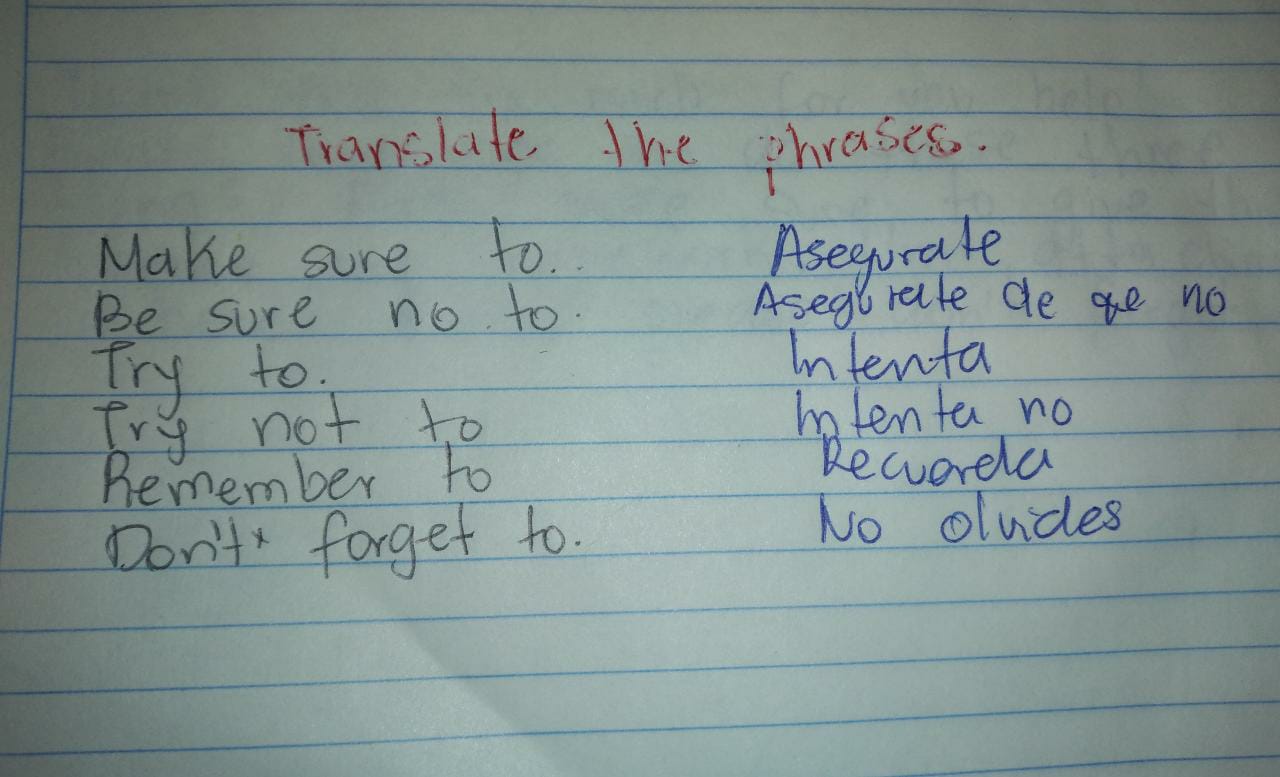 Translate the phrases.
Make sure to.. Asegurate
Be sure no to. Asegurate de que no
Try to. Intenta
Try not to Intenta no
Remember to Recuerda
Don't* forget to. No olvides